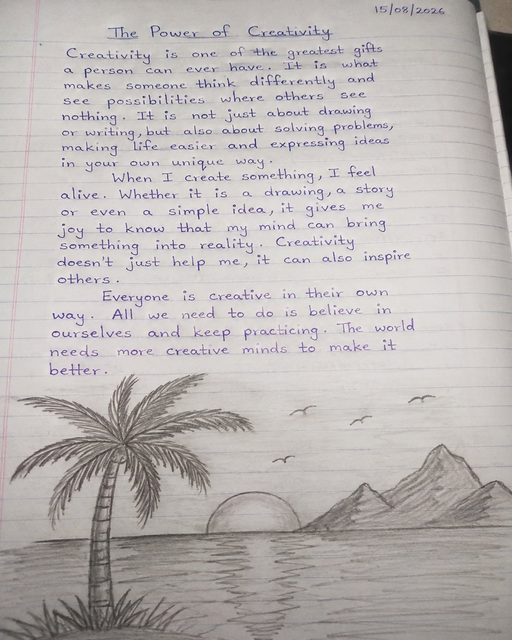 15/08/2026
The Power of Creativity
Creativity is one of the greatest gifts
a person can ever have. It is what
makes someone think differently and
see possibilities where others see
nothing. It is not just about drawing
or writing, but also about solving problems,
making life easier and expressing ideas
in your own unique way.
When I create something, I feel
alive. Whether it is a drawing, a story
or even a simple idea, it gives me
joy to know that my mind can bring
something into reality. Creativity
doesn't just help me, it can also inspire
others.
Everyone is creative in their own
way. All we need to do is believe in
ourselves and keep practicing. The world
needs more creative minds to make it
better.